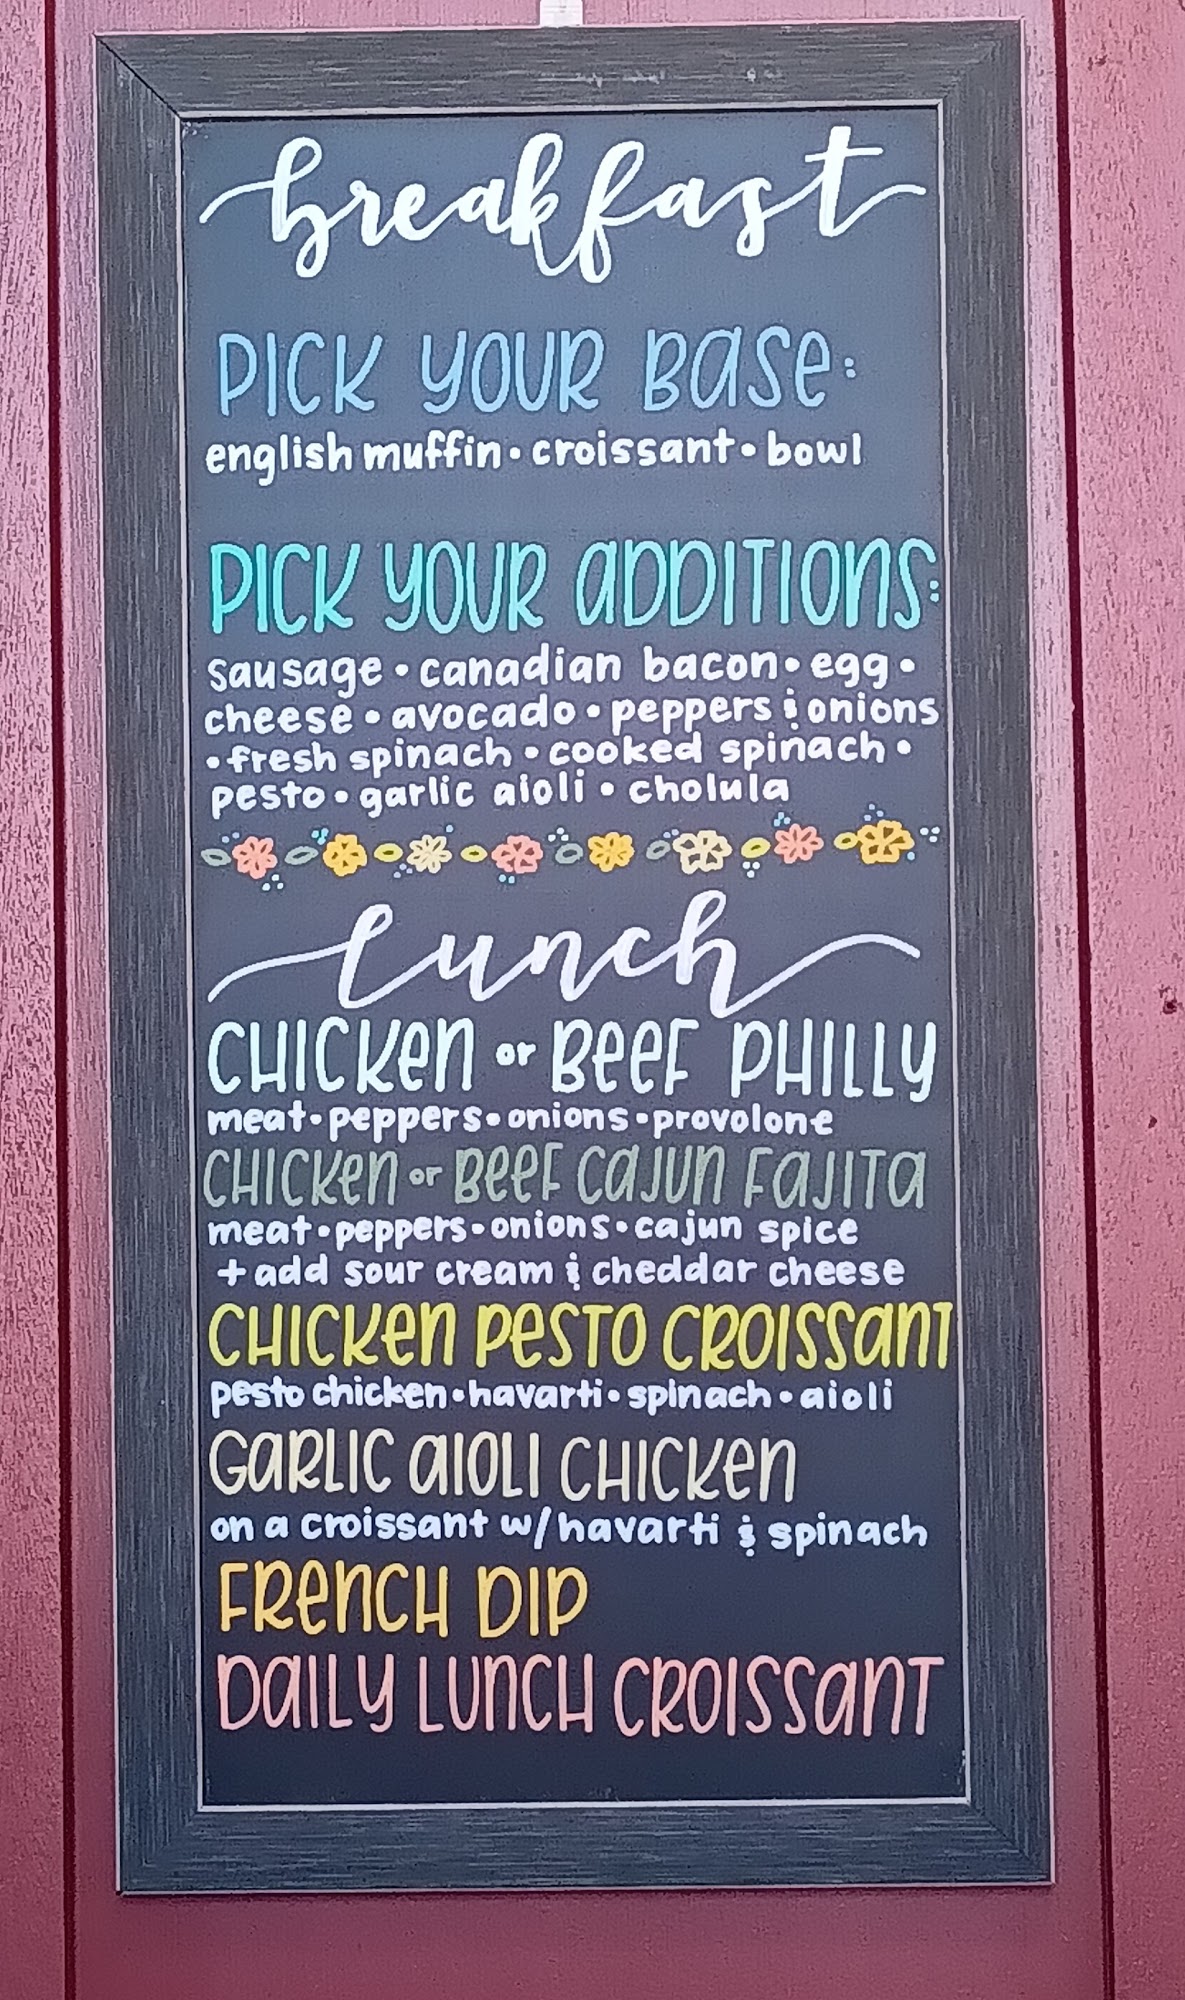 breakfast
PICK YOUR BASE:
english muffin • croissant • bowl
PICK YOUR ADDITIONS:
sausage • canadian bacon • egg •
cheese • avocado • peppers & onions
• fresh spinach • cooked spinach •
pesto • garlic aioli • cholula
lunch
CHICKEN or BEEF PHILLY
meat • peppers • onions • provolone
CHICKEN or BEEF CAJUN FAJITA
meat • peppers • onions • cajun spice
+ add sour cream & cheddar cheese
CHICKEN PESTO CROISSANT
pesto chicken • havarti • spinach • aioli
GARLIC AIOLI CHICKEN
on a croissant w/ havarti & spinach
FRENCH DIP
DAILY LUNCH CROISSANT